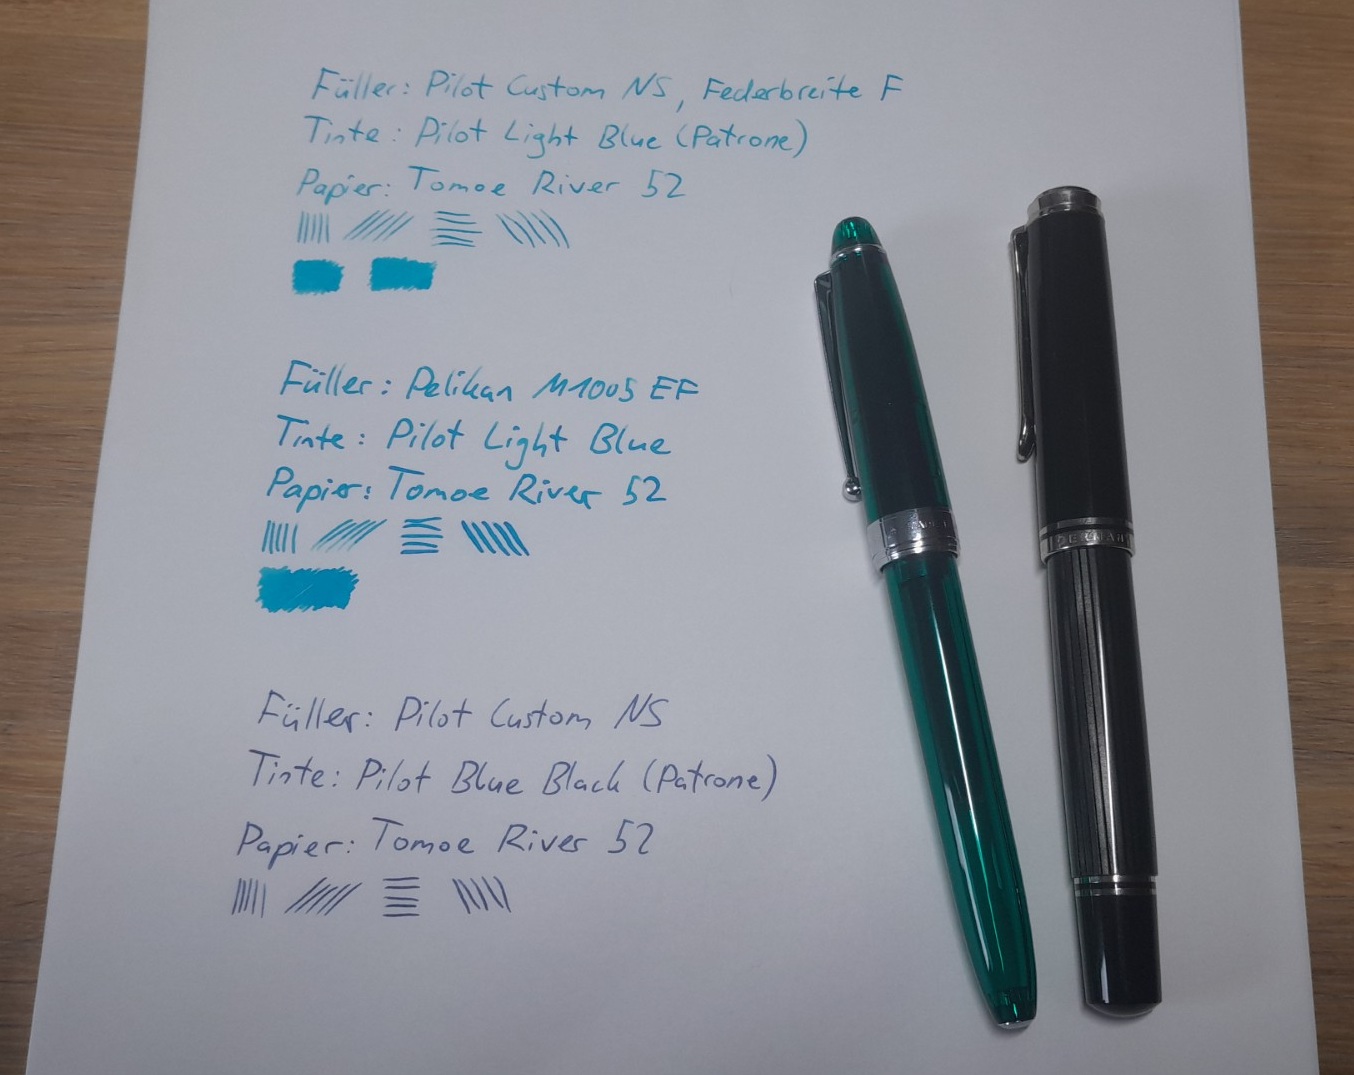 Füller: Pilot Custom NS, Federbreite F
Tinte: Pilot Light Blue (Patrone)
Papier: Tomoe River 52
Füller: Pelikan M1005 EF
Tinte: Pilot Light Blue
Papier: Tomoe River 52
Füller: Pilot Custom NS
Tinte: Pilot Blue Black (Patrone)
Papier: Tomoe River 52
GERMANY